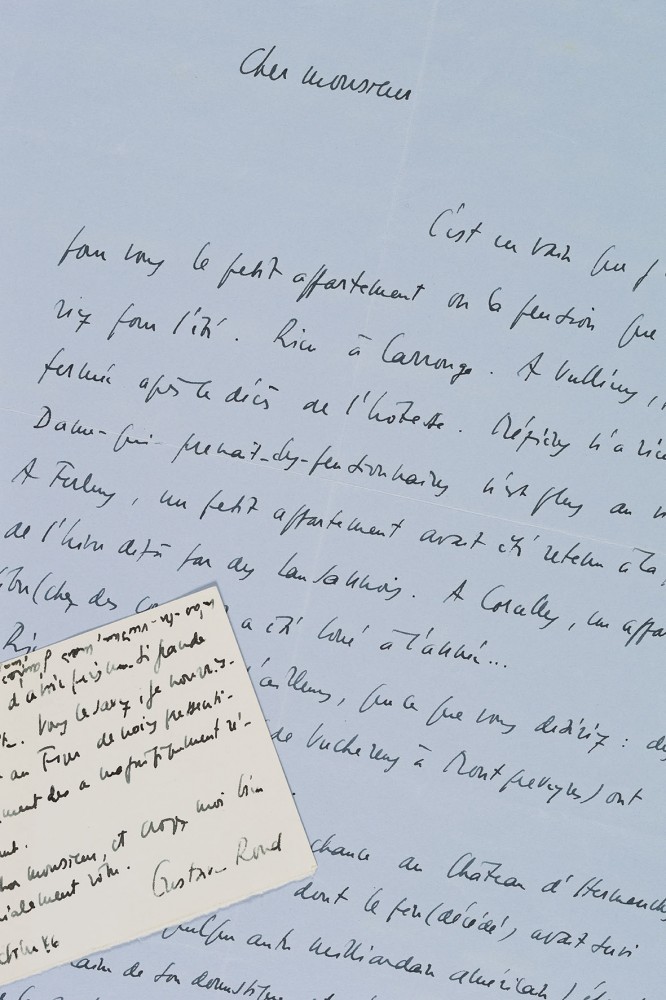 Cher monsieur
C'est en vain que j'
pour vous le petit appartement ou la pension que
riez pour l'été. Rien à Carrouge. A Vulliens,
fermée après le décès de l'hôtesse. Mézières n'a rien
Dame-qui-prenait-des-pensionnaires n'est plus au
A Ferlens, un petit appartement avait été retenu à la
de l'hiver déjà par des lausannois. A Corcelles, un appar
(chez des a été loué à l'année...
d'ailleurs, que ce que vous désiriez : de
de Vucherens à Montpreveyres) ont
chance au Château d'Hermenches
dont le feu (décédé) avait suivi
quelque autre milliardaire américain
de son domestique
d'avoir pris une si grande
Vous le savez, je
au de
a magnifiquement ré-
cher monsieur, et croyez moi bien
cordialement vôtre.
Gustave Roud